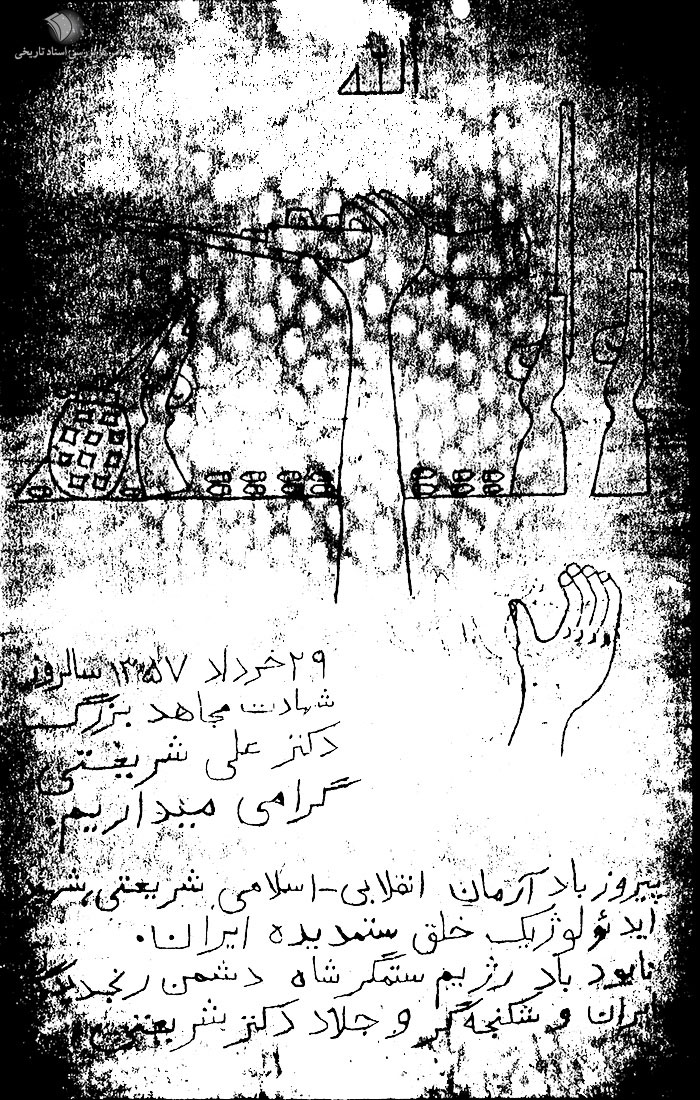 اسناد تاریخی
الله
۲۹ خرداد ۱۳۵۷ سالروز
شهادت مجاهد بزرگ
دکتر علی شریعتی
گرامی میداریم.
پیروز باد آرمان انقلابی-اسلامی شریعتی، شهید
ایدئولوژیک خلق ستمدیده ایران.
نابود باد رژیم ستمگر شاه دشمن
ایران و شکنجه‌گر و جلاد دکتر شریعتی